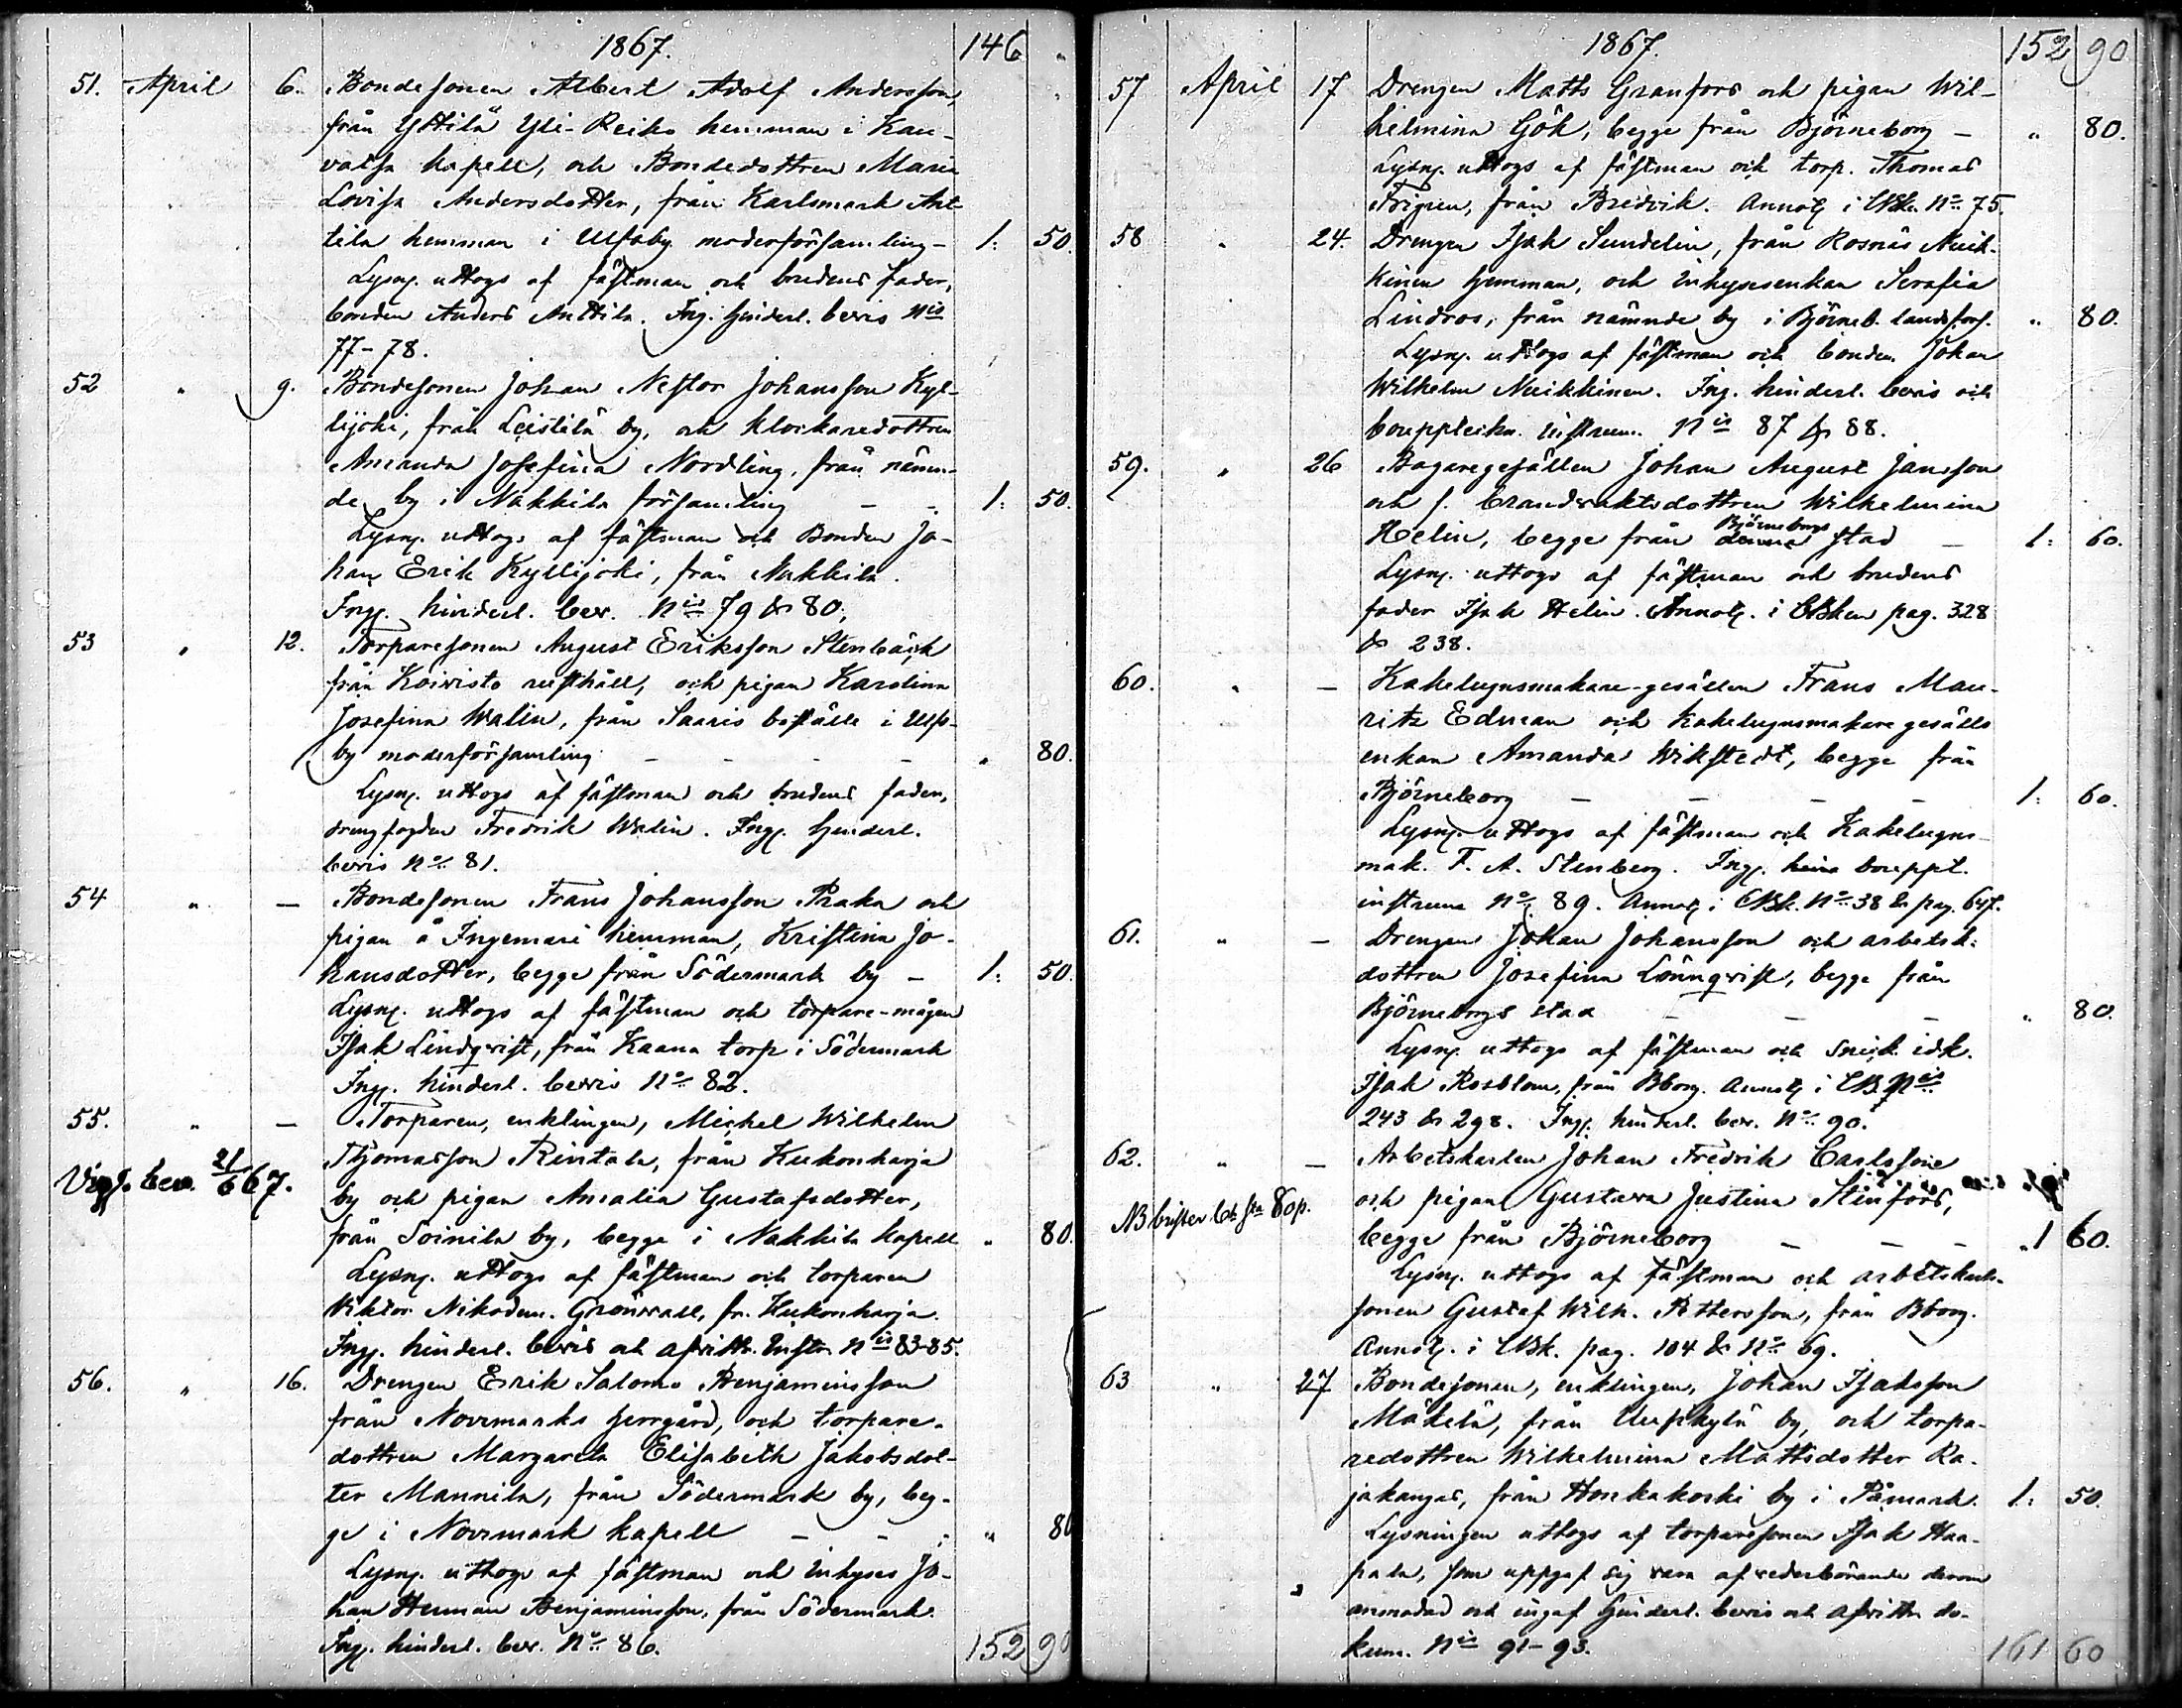 1867. 146 "
51. April 6. Bondesonen Albert Adolf Andersson,
från Yttilä Yli-Reiko hemman i Kau-
vatsa kapell, och Bondedottren Maria
Lovisa Andersdotter, från Karlsmark Ant-
tila hemman i Ulfsby moderförsamling - 1: 50.
Lysng. uttogs af fästman och brudens fader,
bonden Anders Anttila. Ing. hinderl. bevis Nis
77-78.
52 " 9. Bondesonen Johan Nestor Johansson Kyl-
lijoki, från Leistilä by, och klockaredottren
Amanda Josefina Nordling, från nämn-
de by i Nakkila församling - - 1: 50.
Lysng. uttogs af fästman och Bonden Jo-
han Erik Kyllijoki, från Nakkila.
Ingg. hinderl. bev. Nis 79 & 80.
53 " 12. Torparesonen August Eriksson Stenbäck
från Koivisto rusthåll, och pigan Karolina
Josefina Walin, från Saaris boställe i Ulfs-
by moderförsamling - - - - " 80.
Lysng. uttogs af fästman och brudens fader,
drengfogden Fredrik Walin. Ingg. hinderl.
bevis No 81.
54 " - Bondesonen Frans Johansson Praka och
pigan å Ingemari hemman, Kristina Jo-
hansdotter, begge från Södermark by - 1: 50.
Lysng. uttogs af fästman och torpare-mågen
Isak Lindqvist, från Kaana torp i Södermark
Ingg. hinderl. bevis No 82.
55. " - Torparen, enklingen, Michel Wilhelm
Thomasson Rintala, från Kukonharja
Vigs. bev. 21/6 67.
by och pigan Amalia Gustafsdotter,
från Soinila by, begge i Nakkila kapell " 80.
Lysng. uttogs af fästman och torparen
Viktor Nikodem. Grönvall, fr. Kukonharja.
Ingg. hinderl. bevis och afvittr. Instr. Nis 83-85.
56. " 16. Drengen Erik Salomo Benjaminsson
från Norrmarks herrgård, och torpare-
dottren Margareta Elisabeth Jakobsdot-
ter Mannila, från Södermark by, beg-
ge i Norrmark kapell - - - " 80
Lysng. uttogs af fästman och inhyses Jo-
han Herman Benjaminsson, från Södermark.
Ingg. hinderl. bev. No 86. 152 90
1867. 152 90
57 April 17 Drengen Matts Granfors och pigan Wil-
helmina Gök, begge från Björneborg - " 80.
Lysng. uttogs af fästman och torp. Thomas
Frigren, från Bredvik. Annotg i Kbk. No 75.
58 " 24. Drengen Isak Sundelin, från Rosnäs Nuik-
kinen hemman, och inhysesenkan Serafia
Lindros, från nämnde by i Björneb. landsförs. " 80.
Lysng. uttogs af fästman och bonden Johan
Wilhelm Nuikkinen. Ing. hinderl. bevis och
bouppteckn. instrum. Nis 87 & 88.
59. " 26 Bagaregesällen Johan August Jansson
och f. brandvaktsdottren Wilhelmina
Helin, begge från denna Björneborgs stad - 1: 60.
Lysng. uttogs af fästman och brudens
fader Isak Helin. Annotg. i Kbken pag. 328
& 238.
60. " - Kakelugnsmakare-gesällen Frans Mau-
ritz Edman och kakelugnsmakare gesälls
enkan Amanda Wikstedt, begge från
Björneborg - - - - 1: 60.
Lysng. uttogs af fästman och Kakelugns-
mak. F. A. Stenberg. Ingg. bouppt.
instrum No 89. Annotg i Kbk. No 38 & pag. 647.
61. " - Drengen Johan Johansson och arbetsk:
dottren Josefina Lönnqvist, begge från
Björneborgs stad - - - " 80.
Lysng. uttogs af fästman och snick. idk.
Isak Rosblom, från Bborg. Annotg i Kb. Nis
243 & 298. Ingg. hinderl. bev. No 90.
62. " - Arbetskarlen Johan Fredrik Carlsson
och pigan Gustava Justina Stenfors,
NB brister bet. 80 p.
begge från Björneborg - - - " 1 60.
Lysng. uttogs af fästman och arbetskarls-
sonen Gustaf Wilh. Pettersson, från Bborg.
Annotg. i Kbk. pag. 104 & No 69.
63 " 27 Bondesonen, enklingen, Johan Isaksson
Mäkelä, från Uusikylä by, och torpa-
redottren Wilhelmina Mattsdotter Ra-
jakangas, från Honkakoski by i Påmark. 1: 50.
Lysningen uttogs af torparesonen Isak Haa-
pala, som uppgaf sig vara af vederbörande derom
anmodad och ingaf hinderl. bevis och afvittr. do-
kum. Nis 91-93. 161 60